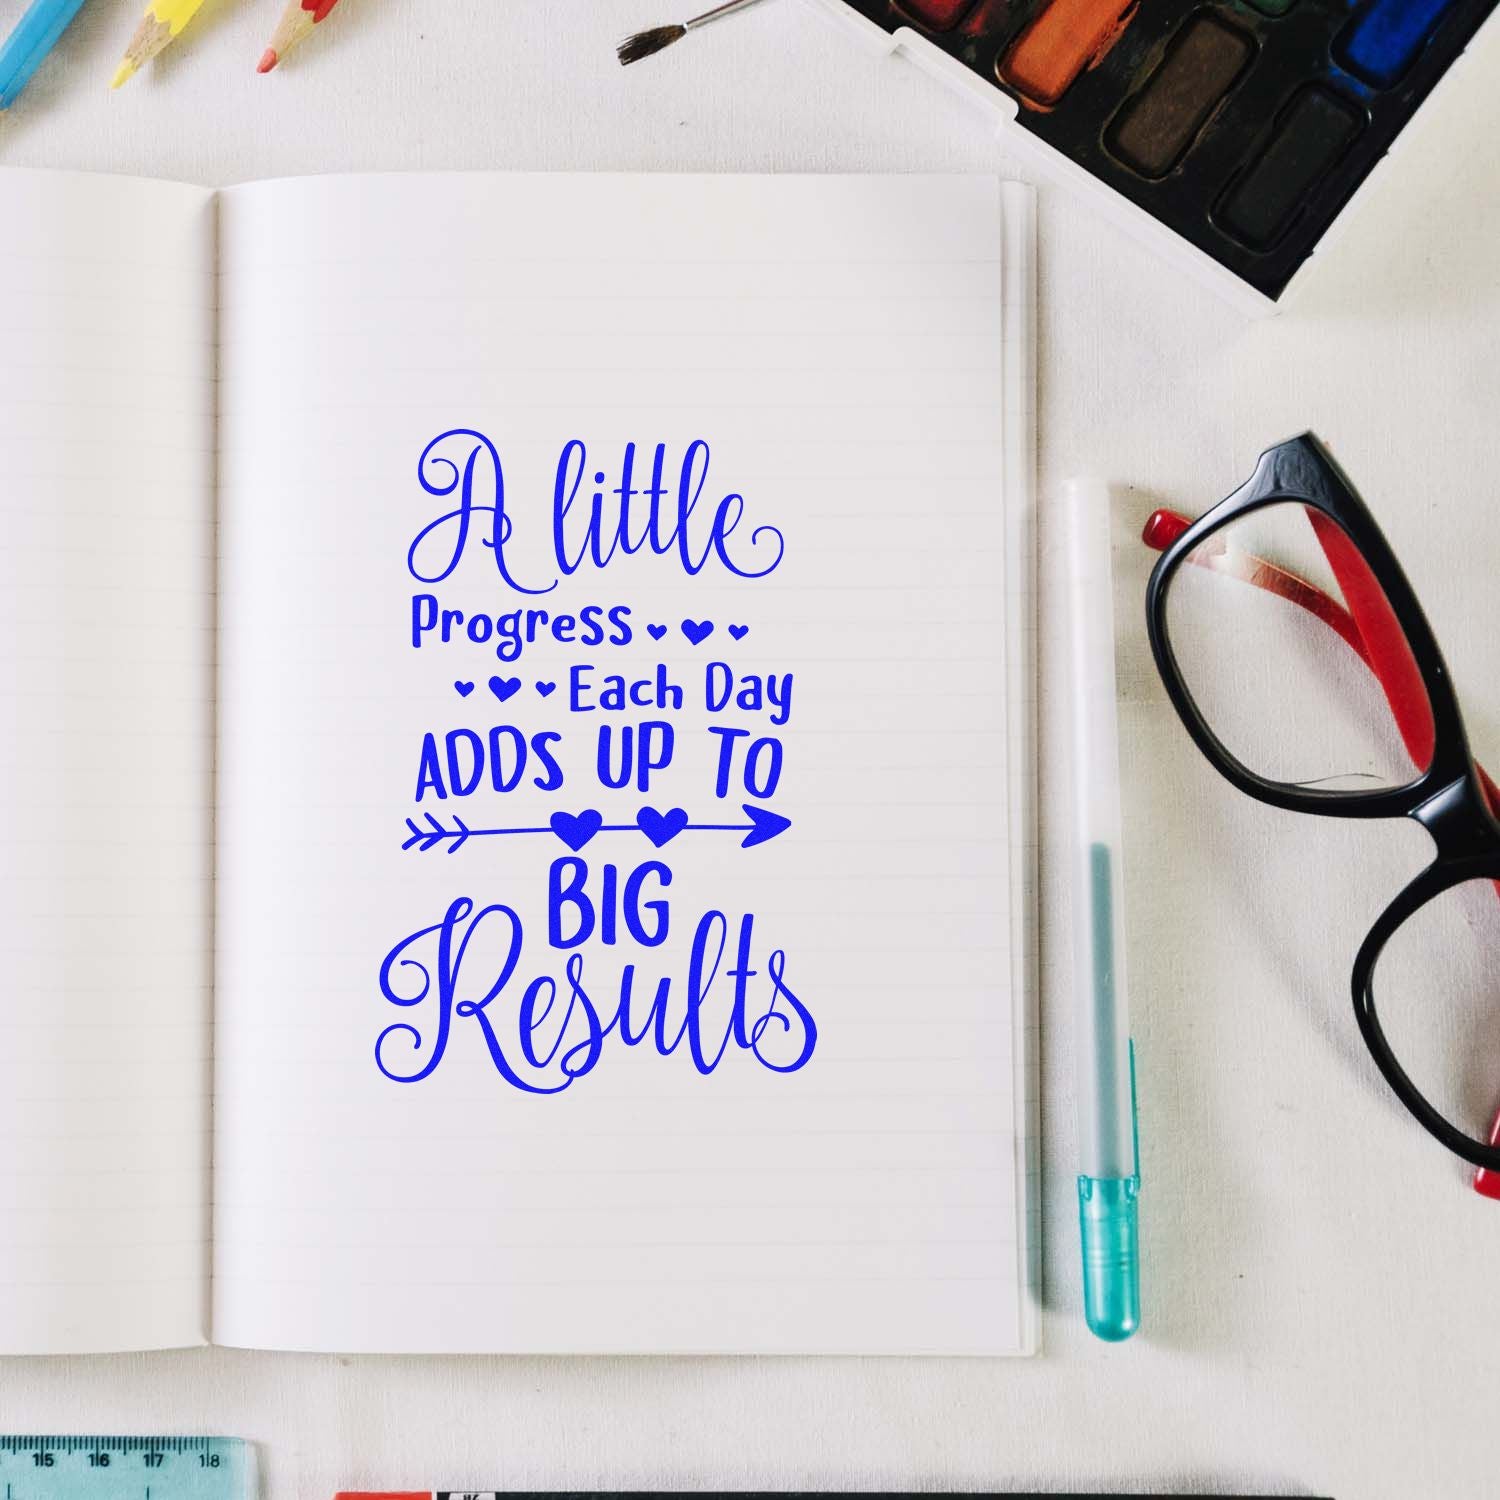 A little
Progress
Each Day
ADDS UP TO
BIG
Results
15 16 17 18